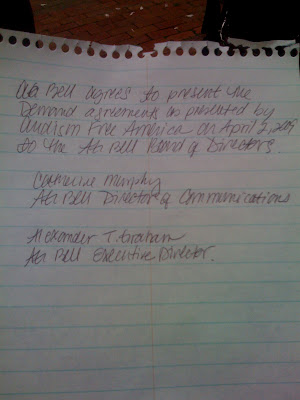 AG Bell agrees to present the
Demand agreements as presented by
Audism Free America on April 2, 2009
to the AG Bell Board of Directors.
Catherine Murphy
AG Bell Director of Communications
Alexander T. Graham
AG Bell Executive Director.